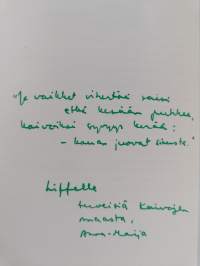 "Ja vaikket vihertää saisi
etkä kesään puhkea,
kaivoiksi syvyys kerää:
– kauan juovat sinusta."
Liffelle
terveisiä Kaivojen
maasta,
Anna-Maija